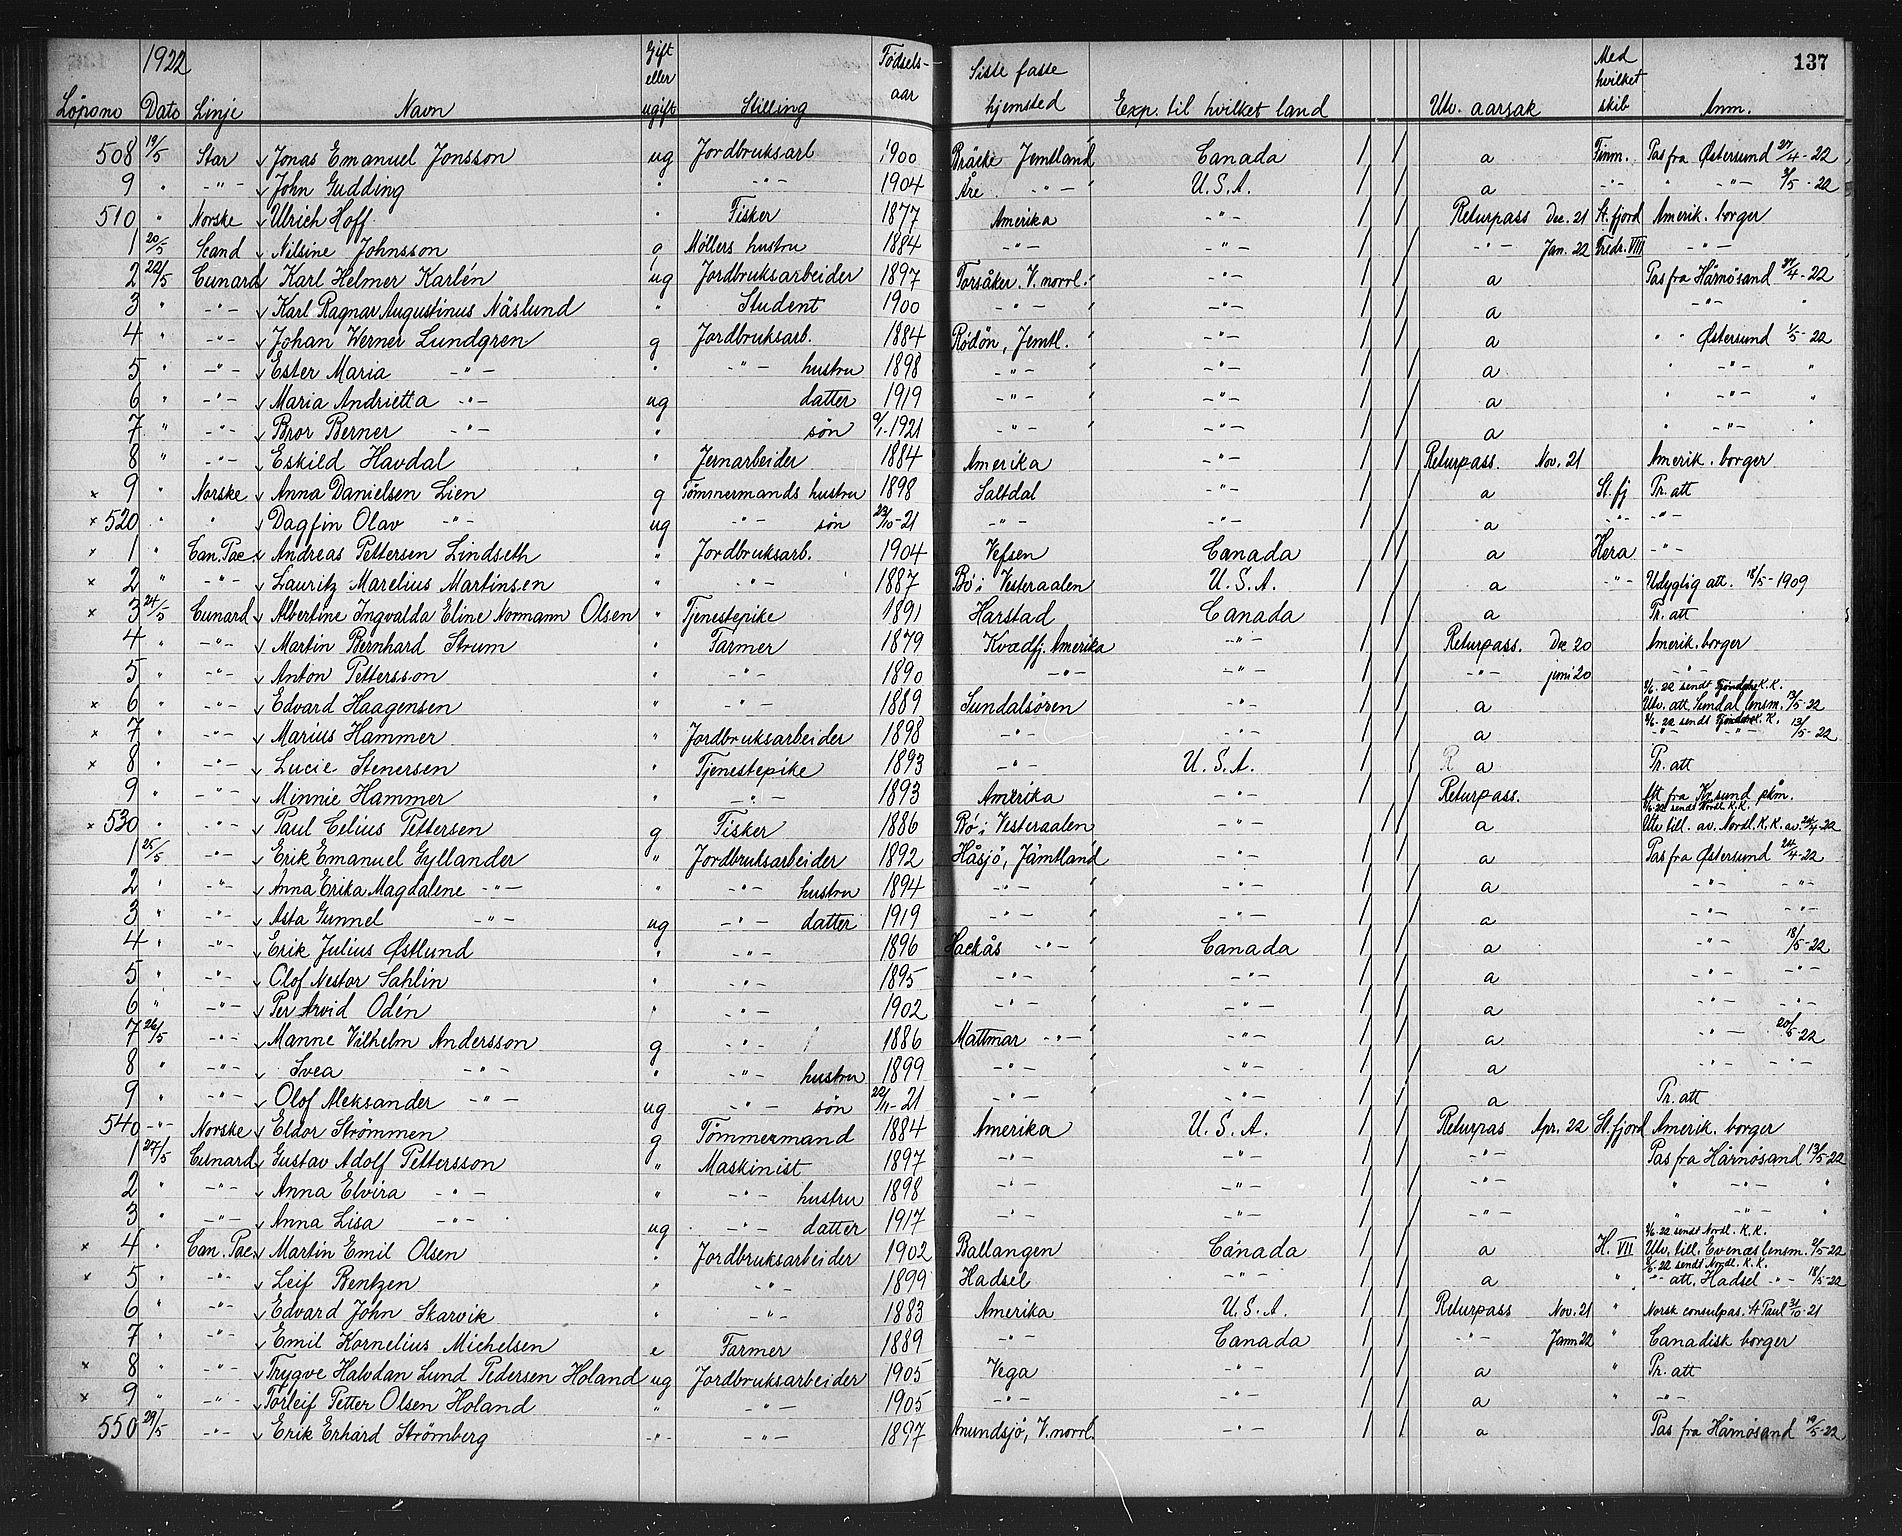 1922 137
Löpeno Dato Linje Navn Gift eller ugift Stilling Fødsels-aar Siste faste hjemsted Exp. til hvilket land Utv. aarsak Med hvilket skib Anm.
508 19/5 Star Jonas Emanuel Jonsson ug Jordbruksarb 1900 Bräcke Jemtland Canada a Finm. Pas fra Østersund 27/4-22
9 " -"- John Gudding " -"- 1904 Åre -"- U.S.A. a -"- " -"- 3/5-22
510 " Norske Ulrich Hoff " Fisker 1877 Amerika -"- Returpass Dec. 21 St.fjord Amerik. borger
1 20/5 Scand Nilsine Johnsson g Møllers hustru 1884 -"- -"- -"- Jan. 22 Fredr. VIII -"-
2 22/5 Cunard Karl Helmer Karlén ug Jordbruksarbeider 1897 Torsåker. V. norrl. -"- a Pas fra Härnösand 27/4-22
3 " -"- Karl Ragnar Augustinus Näslund " Student 1900 -"- -"- a -"- "
4 " -"- Johan Werner Lundgren g Jordbruksarb. 1884 Rödön, Jemtl. -"- a " " Østersund 1/5-22
5 " -"- Ester Maria -"- " -"- hustru 1898 -"- -"- a " -"- "
6 " -"- Maria Andrietta -"- ug datter 1919 -"- -"- a " -"- "
7 " -"- Bror Berner -"- " søn 9/1-1921 -"- -"- a " -"- "
8 " -"- Eskild Havdal " Jernarbeider 1884 Amerika -"- Returpass. Nov. 21 Amerik. borger
x 9 " Norske Anna Danielsen Lien g Tømmermands hustru 1898 Saltdal -"- a St. fj Pr. att
x 520 " " Dagfin Olav -"- ug -"- søn 23/10-21 -"- -"- a -"- -"-
x 1 " Can. Pac. Andreas Pettersen Lindseth " Jordbruksarb. 1904 Vefsen Canada a Hera -"-
x 2 " -"- Lauritz Marelius Martinsen " -"- 1887 Bø i Vesteraalen U.S.A. a -"- Udyglig att. 18/5-1909
x 3 24/5 Cunard Albertine Ingvalda Eline Normann Olsen " Tjenestepike 1891 Harstad Canada a Pr. att
4 " -"- Martin Bernhard Strum " Farmer 1879 Kvædfj. Amerika -"- Returpass. Dec 20 Amerik. borger
5 " -"- Anton Pettersson " -"- 1890 -"- -"- -"- juni 20 -"-
x 6 " -"- Edvard Haagensen " -"- 1889 Sundalsören -"- a 2/6-22 sendt K.K. Utv. att. Sundal lensm. 13/5-22
x 7 " -"- Marius Hammer " Jordbruksarbeider 1898 -"- -"- a 2/6-22 sendt K.K. -"- -"- 13/5-22
x 8 " -"- Lucie Stenersen " Tjenestepike 1893 -"- U.S.A. R a Pr. att
9 " -"- Minnie Hammer " -"- 1893 Amerika -"- Returpass. Att fra Kr.sund pkm.
x 530 " -"- Paul Celius Pettersen g Fisker 1886 Bø i Vesteraalen -"- a 2/6-22 sendt Nordl. K.K. Utv till. av. Nordl. K.K. av. 24/4-22
1 25/5 -"- Erik Emanuel Gyllander " Jordbruksarbeider 1892 Håsjö, Jämtland -"- a Pas fra Østersund 24/4-22
2 " -"- Anna Erika Magdalene -"- " -"- hustru 1894 -"- -"- a -"- -"-
3 " -"- Asta Gunnel -"- ug -"- datter 1919 -"- -"- a -"- -"-
4 " -"- Erik Julius Østlund " -"- 1896 Hackås -"- Canada a -"- 18/5-22
5 " -"- Olof Nestor Sahlin " -"- 1895 -"- -"- a -"- -"-
6 " -"- Per Arvid Odén " -"- 1902 -"- -"- a -"- -"-
7 26/5 -"- Manne Vilhelm Andersson g -"- 1886 Mattmar -"- -"- a -"- 20/5-22
8 " -"- Svea -"- " -"- hustru 1899 -"- -"- a -"- -"-
9 " -"- Olof Aleksander -"- ug -"- søn 22/11-21 -"- -"- a Pr. att
540 -"- Norske Eldor Strømmen g Tømmermand 1884 Amerika U.S.A. Returpas Apr. 22 St.fjord Amerik. borger
1 27/5 Cunard Gustav Adolf Pettersson " Maskinist 1897 -"- -"- -"- Pas fra Härnösand 13/5-22
2 " -"- Anna Elvira -"- " -"- hustru 1898 -"- -"- -"- " -"- "
3 " -"- Anna Lisa -"- ug -"- datter 1917 -"- -"- -"- " -"- "
x 4 " Can. Pac. Martin Emil Olsen " Jordbruksarbeider 1902 Ballangen Canada a H. VII 2/6-22 sendt Nordl. K.K. Utv. till. Evenæs lensm. 2/5-22
x 5 " -"- Leif Bentzen " -"- 1899 Hadsel -"- a " 2/6-22 sendt Nordl. K.K. -"- att. Hadsel -"- 18/5-22
6 " -"- Edvard John Skarvik " -"- 1883 Amerika U.S.A. Returpass Nov. 21 " Norsk consulpas. St Paul 31/10-21
7 " -"- Emil Kornelius Michelsen e Farmer 1889 -"- Canada -"- Jann. 22 " Canadisk borger
x 8 " -"- Trygve Halvdan Lund Pedersen Holand ug Jordbruksarbeider 1905 Vega -"- a " Pr. att
x 9 " -"- Torleif Petter Olsen Holand " -"- 1905 -"- -"- a " -"-
550 29/5 -"- Erik Erhard Strömberg -"- -"- 1897 Anundsjö, V. norrl. -"- a Pas fra Härnösand 19/5-22